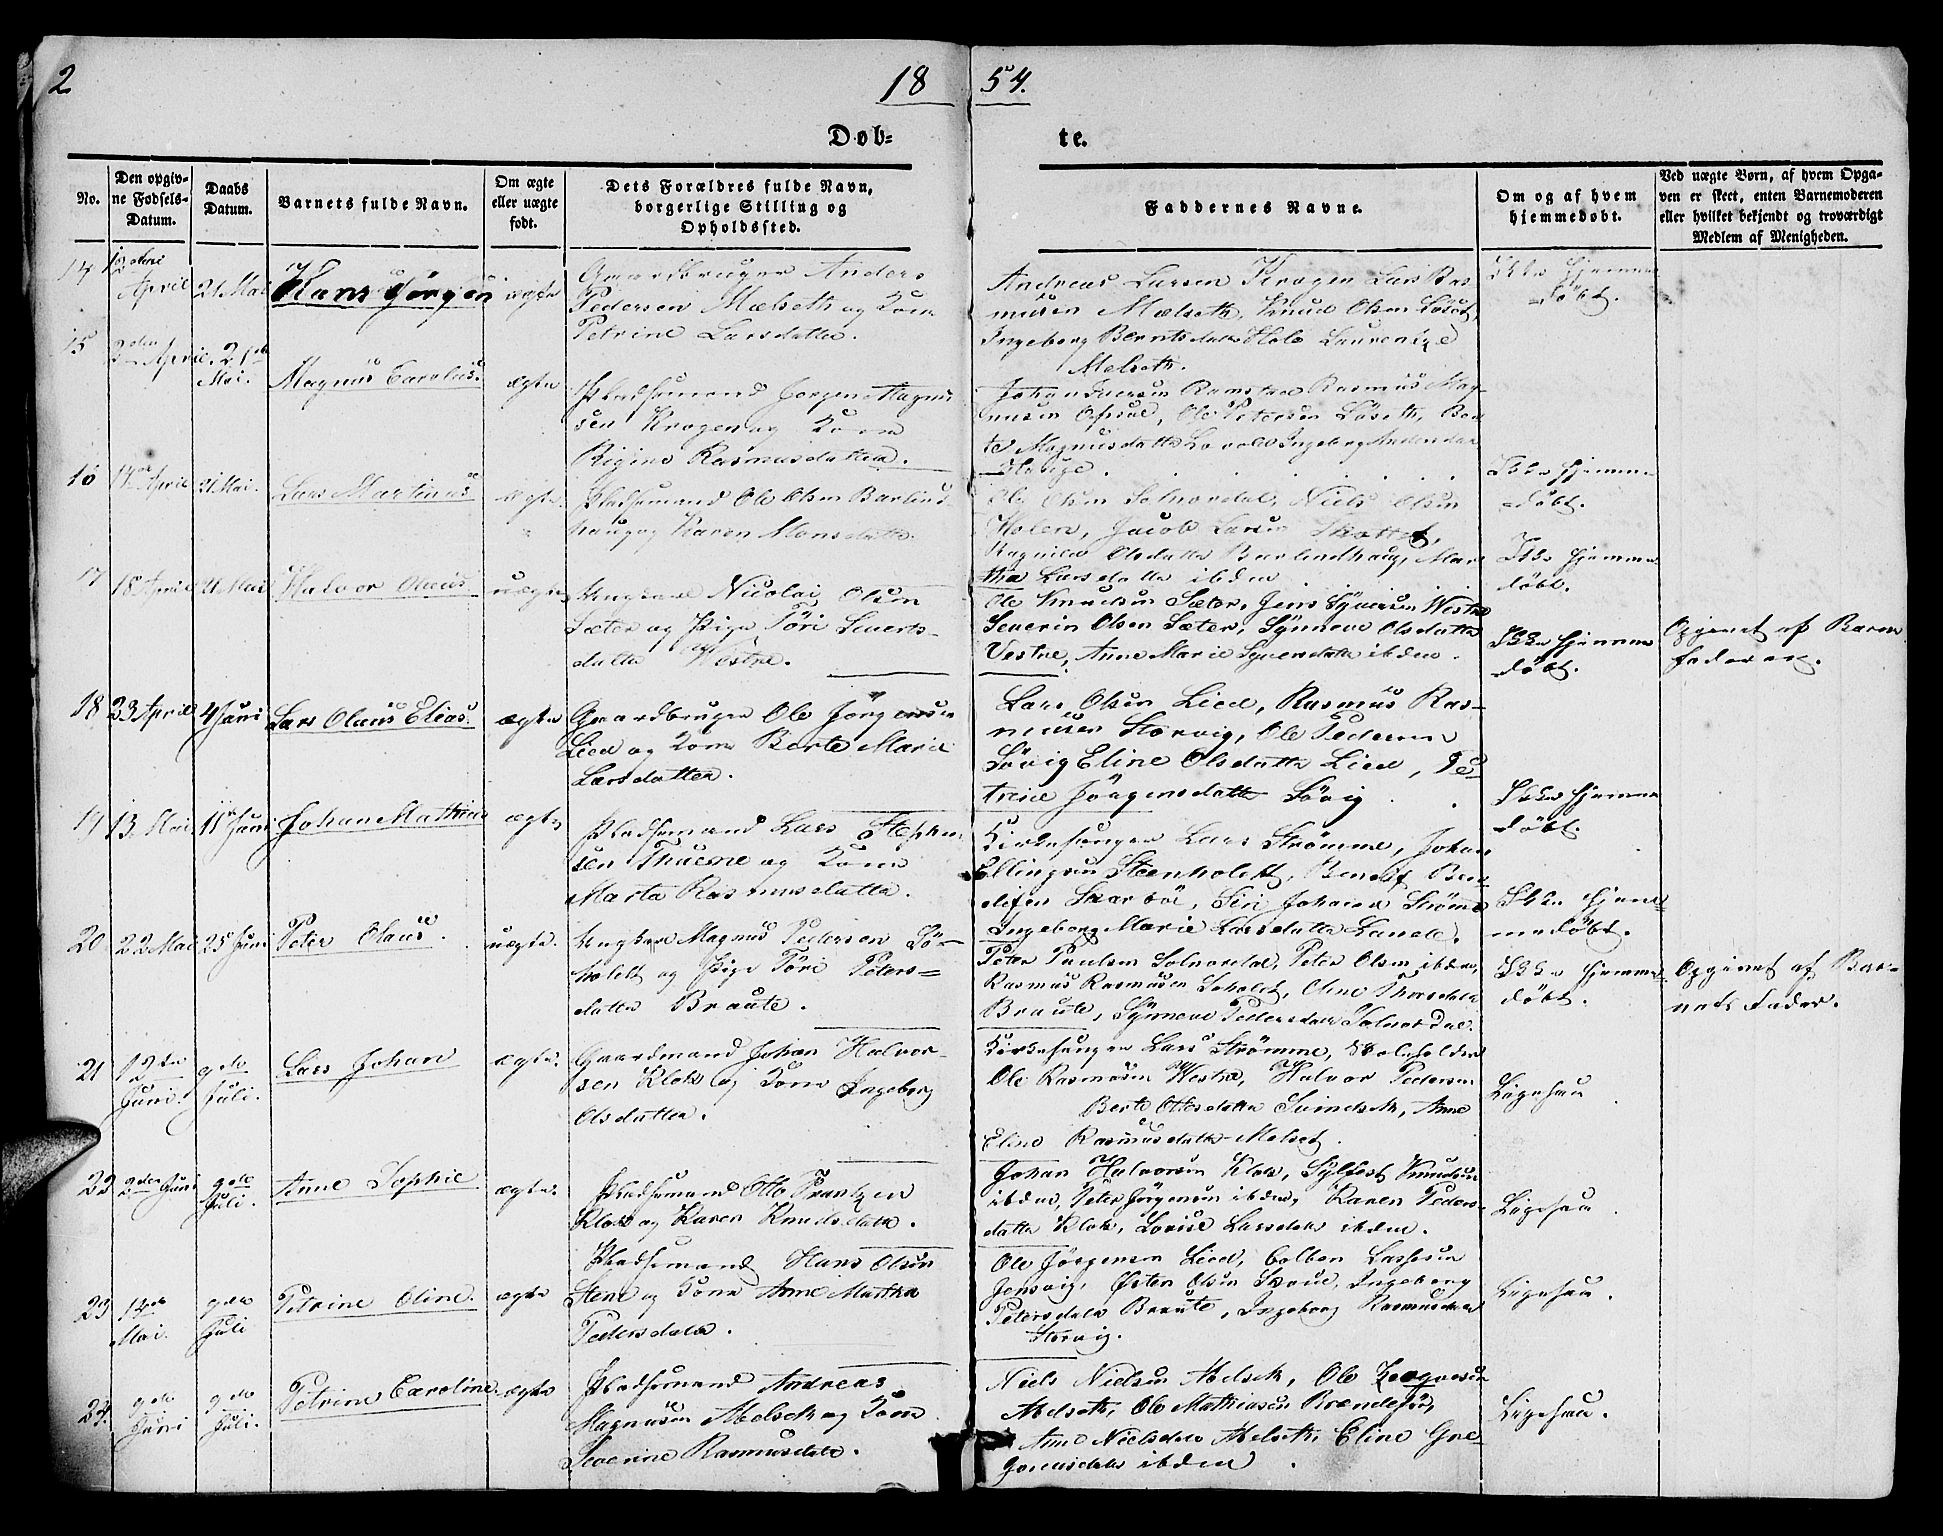 2
18 54.
Døb=
te.
No.
Den opgiv-
ne Fødsels-
Datum.
Daabs
Datum.
Barnets fulde Navn.
Om ægte
eller uægte
født.
Dets Forældres fulde Navn,
borgerlige Stilling og
Opholdssted.
Faddernes Navne.
Om og af hvem
hjemmedøbt.
Ved uægte Børn, af hvem Opga-
ven er skeet, enten Barnemoderen
eller hvilket bekjendt og troværdigt
Medlem af Menigheden.
14
April
21 Mai
Hans Jørgen
ægte
Gaardbruger Anders
Pedersen Mælseth og Kone
Petrine Larsdatter.
Andreas Larsen Kragen Lars Ras-
musen Mælseth, Knud Olsen Løset,
Ingeborg Berntsdatter Hole
Melseth.
Ikke hjemme
døbt.
15
April
21de
Mai.
Magnus Carolus.
ægte
Pladsemand Jørgen Magnus
sen Kragen og Kone
Rasmusdatter.
Johan Iversen Ramstad Rasmus Mag-
nusen Opsal, Ole Petersen Løseth, Ber-
te Magnusdatter Ingeborg
Hauge.
Ikke hjemme
døbt.
16
April
21 Mai.
Lars Martinus
ægte.
Pladsemand Ole Olsen Barlind-
haug og Karen Monsdatter.
Ole Olsen Solnørdal, Niels Olsen
Holen, Jacob Larsen
Ragnild Olsdatter Barlindhaug, Mar-
the Larsdatter ibden
Ikke hjemme
døbt.
17
18 April
21 Mai
Halvor Olaus
uægte
Ungkarl Nicolai Olsen
Sæter og Pige Töri Siverts-
datter Westre.
Ole Knudsen Sæter, Jens Syversen Westre
Severin Olsen Sæter, Synneve Olsdatter
Vestre, Anne Marie Syversdatter ibden.
Ikke hjemme
døbt.
Opgivet af Barne
faderen.
18
23 April
4 Juni
Lars Olaus Elias.
ægte
Gaardbruger Ole Jørgensen
Lied og Kone Berte Marie
Larsdatter.
Lars Olsen Lied, Rasmus Ras-
musen Storvig, Ole Pedersen
Søvig Eline Olsdatter Lied, Pe-
trine Jørgensdatter Søvig
Ikke hjemme
døbt.
19
13 Mai
11 Juni
Johan Mathias
ægte
Pladsemand Lars Stephen
sen Thuene og Kone
Marta Rasmusdatter.
Kirkesanger Lars Strømme, Johan
Ellingsen Steenholdt, Bendix Ben-
dixen Skarbøe, Siri Johanne Strømme
Ingeborg Marie Larsdatter Lande.
Ikke hjem-
medøbt.
20
22 Mai
25 Juni
Peter Olaus.
uægte.
Ungkarl Magnus Pedersen Sö-
holdt og Pige Töri Peters=
datter Braute.
Peter Paulsen Solnørdal, Peter Olsen ibden,
Rasmus Rasmusen Søholdt, Oline
Braute, Synneve Pedersdatter Solnørdal.
Ikke hjemme
døbt.
Opgivet af Bar-
nets Fader.
21
Juni.
9de
Juli.
Lars Johan
ægte.
Gaardmand Johan Halvor-
sen Klok og Kone Ingeborg
Olsdatter.
Kirkesanger Lars Strømme, Skoleholder
Ole Rasmusen Westre, Halvor Pedersen
Berte Ottesdatter Svindseth, Anne
Eline Rasmusdatter Melset.
Ligesaa
22
Juni
9de
Juli.
Anne Sophie
ægte.
Pladsemand Otto Frantzen
Klok og Karen Knudsdatter.
Johan Halvorsen Klok, Sylfest Knudsen
ibden, Peter Jørgensen ibden, Karen Peders-
datter Klok, Lovise Larsdatter ibden.
Ligesaa.
23
14de
Mai.
9de
Juli
Petrine Oline.
ægte
Pladsemand Hans Olsen
Stene og Kone Anne Martha
Pedersdatter.
Ole Jørgensen Lied, Colben Lassesen
Jonsvig, Østen Olsen Skoue, Ingeborg
Petersdatter Braute, Ingeborg Rasmusdatter
Storvig.
Ligesaa.
24.
9de
Juni
9de
Juli.
Petrine Caroline.
ægte
Pladsemand Andreas
Magnusen Melseth og Kone
Severine Rasmusdatter.
Niels Nielsen Melseth, Ole
Melseth, Ole Mathiasen
Anne Nielsdatter Melseth, Eline Gre-
goriusdatter ibden.
Ligesaa.